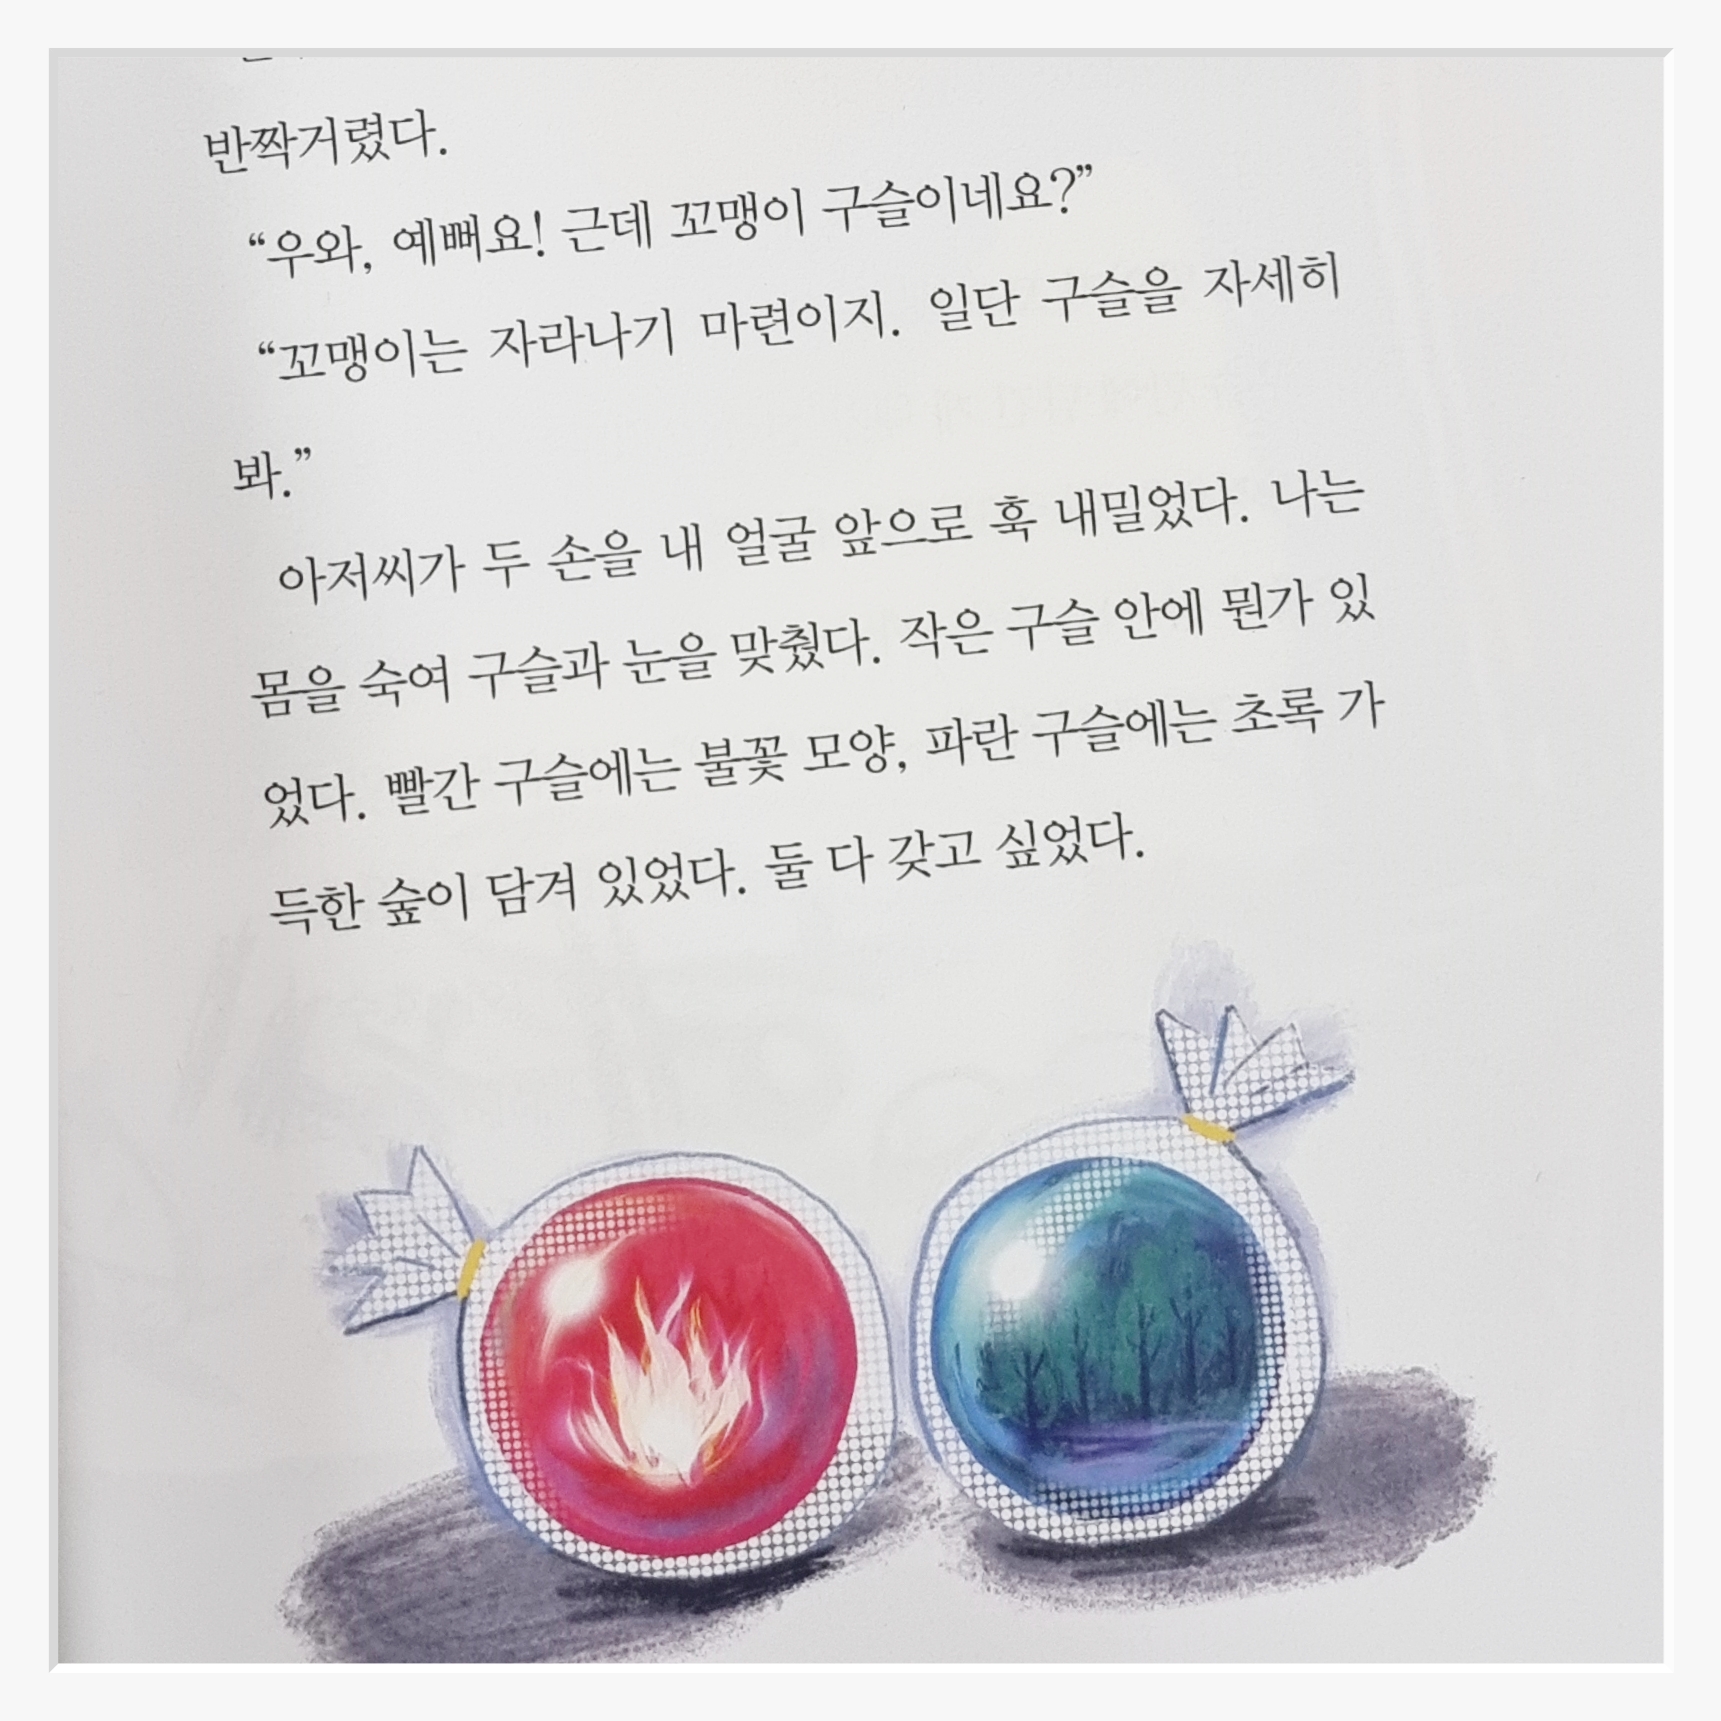 반짝거렸다.
“우와, 예뻐요! 근데 꼬맹이 구슬이네요?”
“꼬맹이는 자라나기 마련이지. 일단 구슬을 자세히
봐.”
아저씨가 두 손을 내 얼굴 앞으로 훅 내밀었다. 나는
몸을 숙여 구슬과 눈을 맞췄다. 작은 구슬 안에 뭔가 있
었다. 빨간 구슬에는 불꽃 모양, 파란 구슬에는 초록 가
득한 숲이 담겨 있었다. 둘 다 갖고 싶었다.